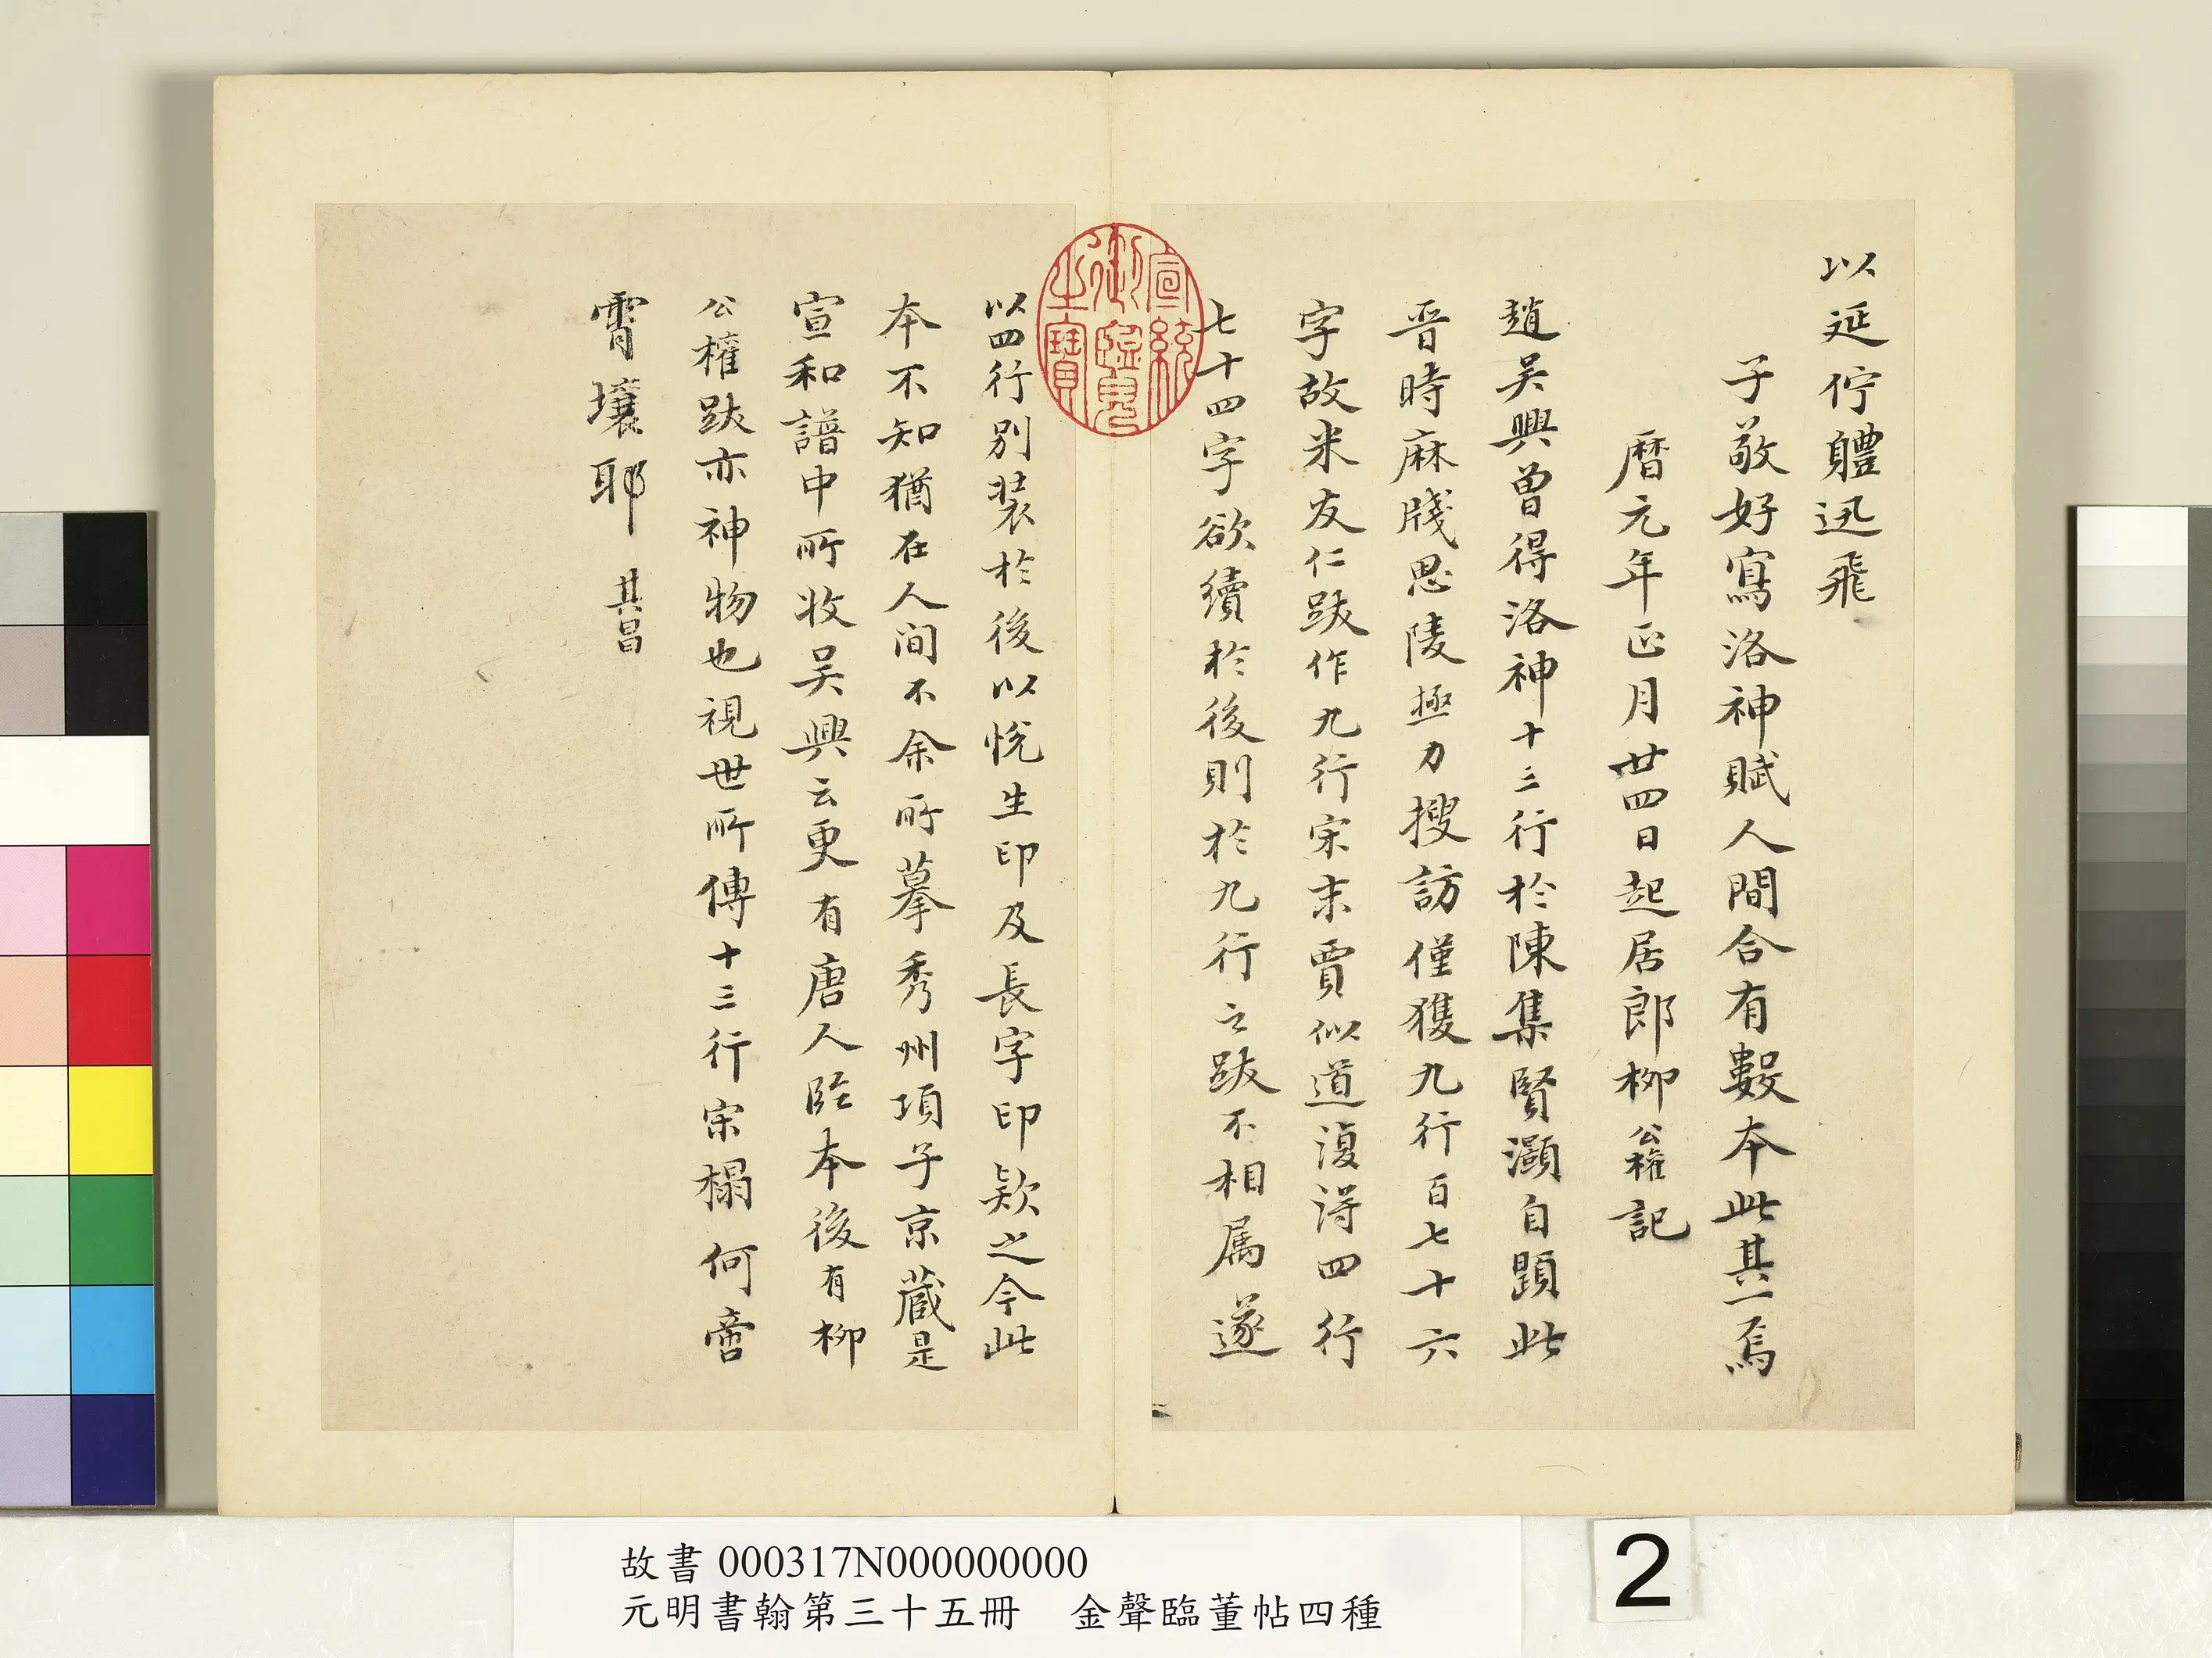 以延佇體迅飛
子敬好寫洛神賦人間合有數本此其一焉
曆元年正月廿四日起居郎柳公權記
趙吳興曾得洛神十三行於陳集賢灝自題此
晉時麻牋思陵極力搜訪僅獲九行百七十六
字故米友仁跋作九行宋末賈似道復得四行
七十四字欲續於後則於九行之跋不相屬遂
以四行別裝於後以悅生印及長字印款之今此
本不知猶在人间不余所摹秀州項子京藏是
宣和譜中所收吳興云更有唐人臨本後有柳
公權跋亦神物也視世所傳十三行宋榻何啻
霄壤耶 其昌
宣統御覽之寶
故書 000317N000000000
元明書翰第三十五冊 金聲臨董帖四種
2